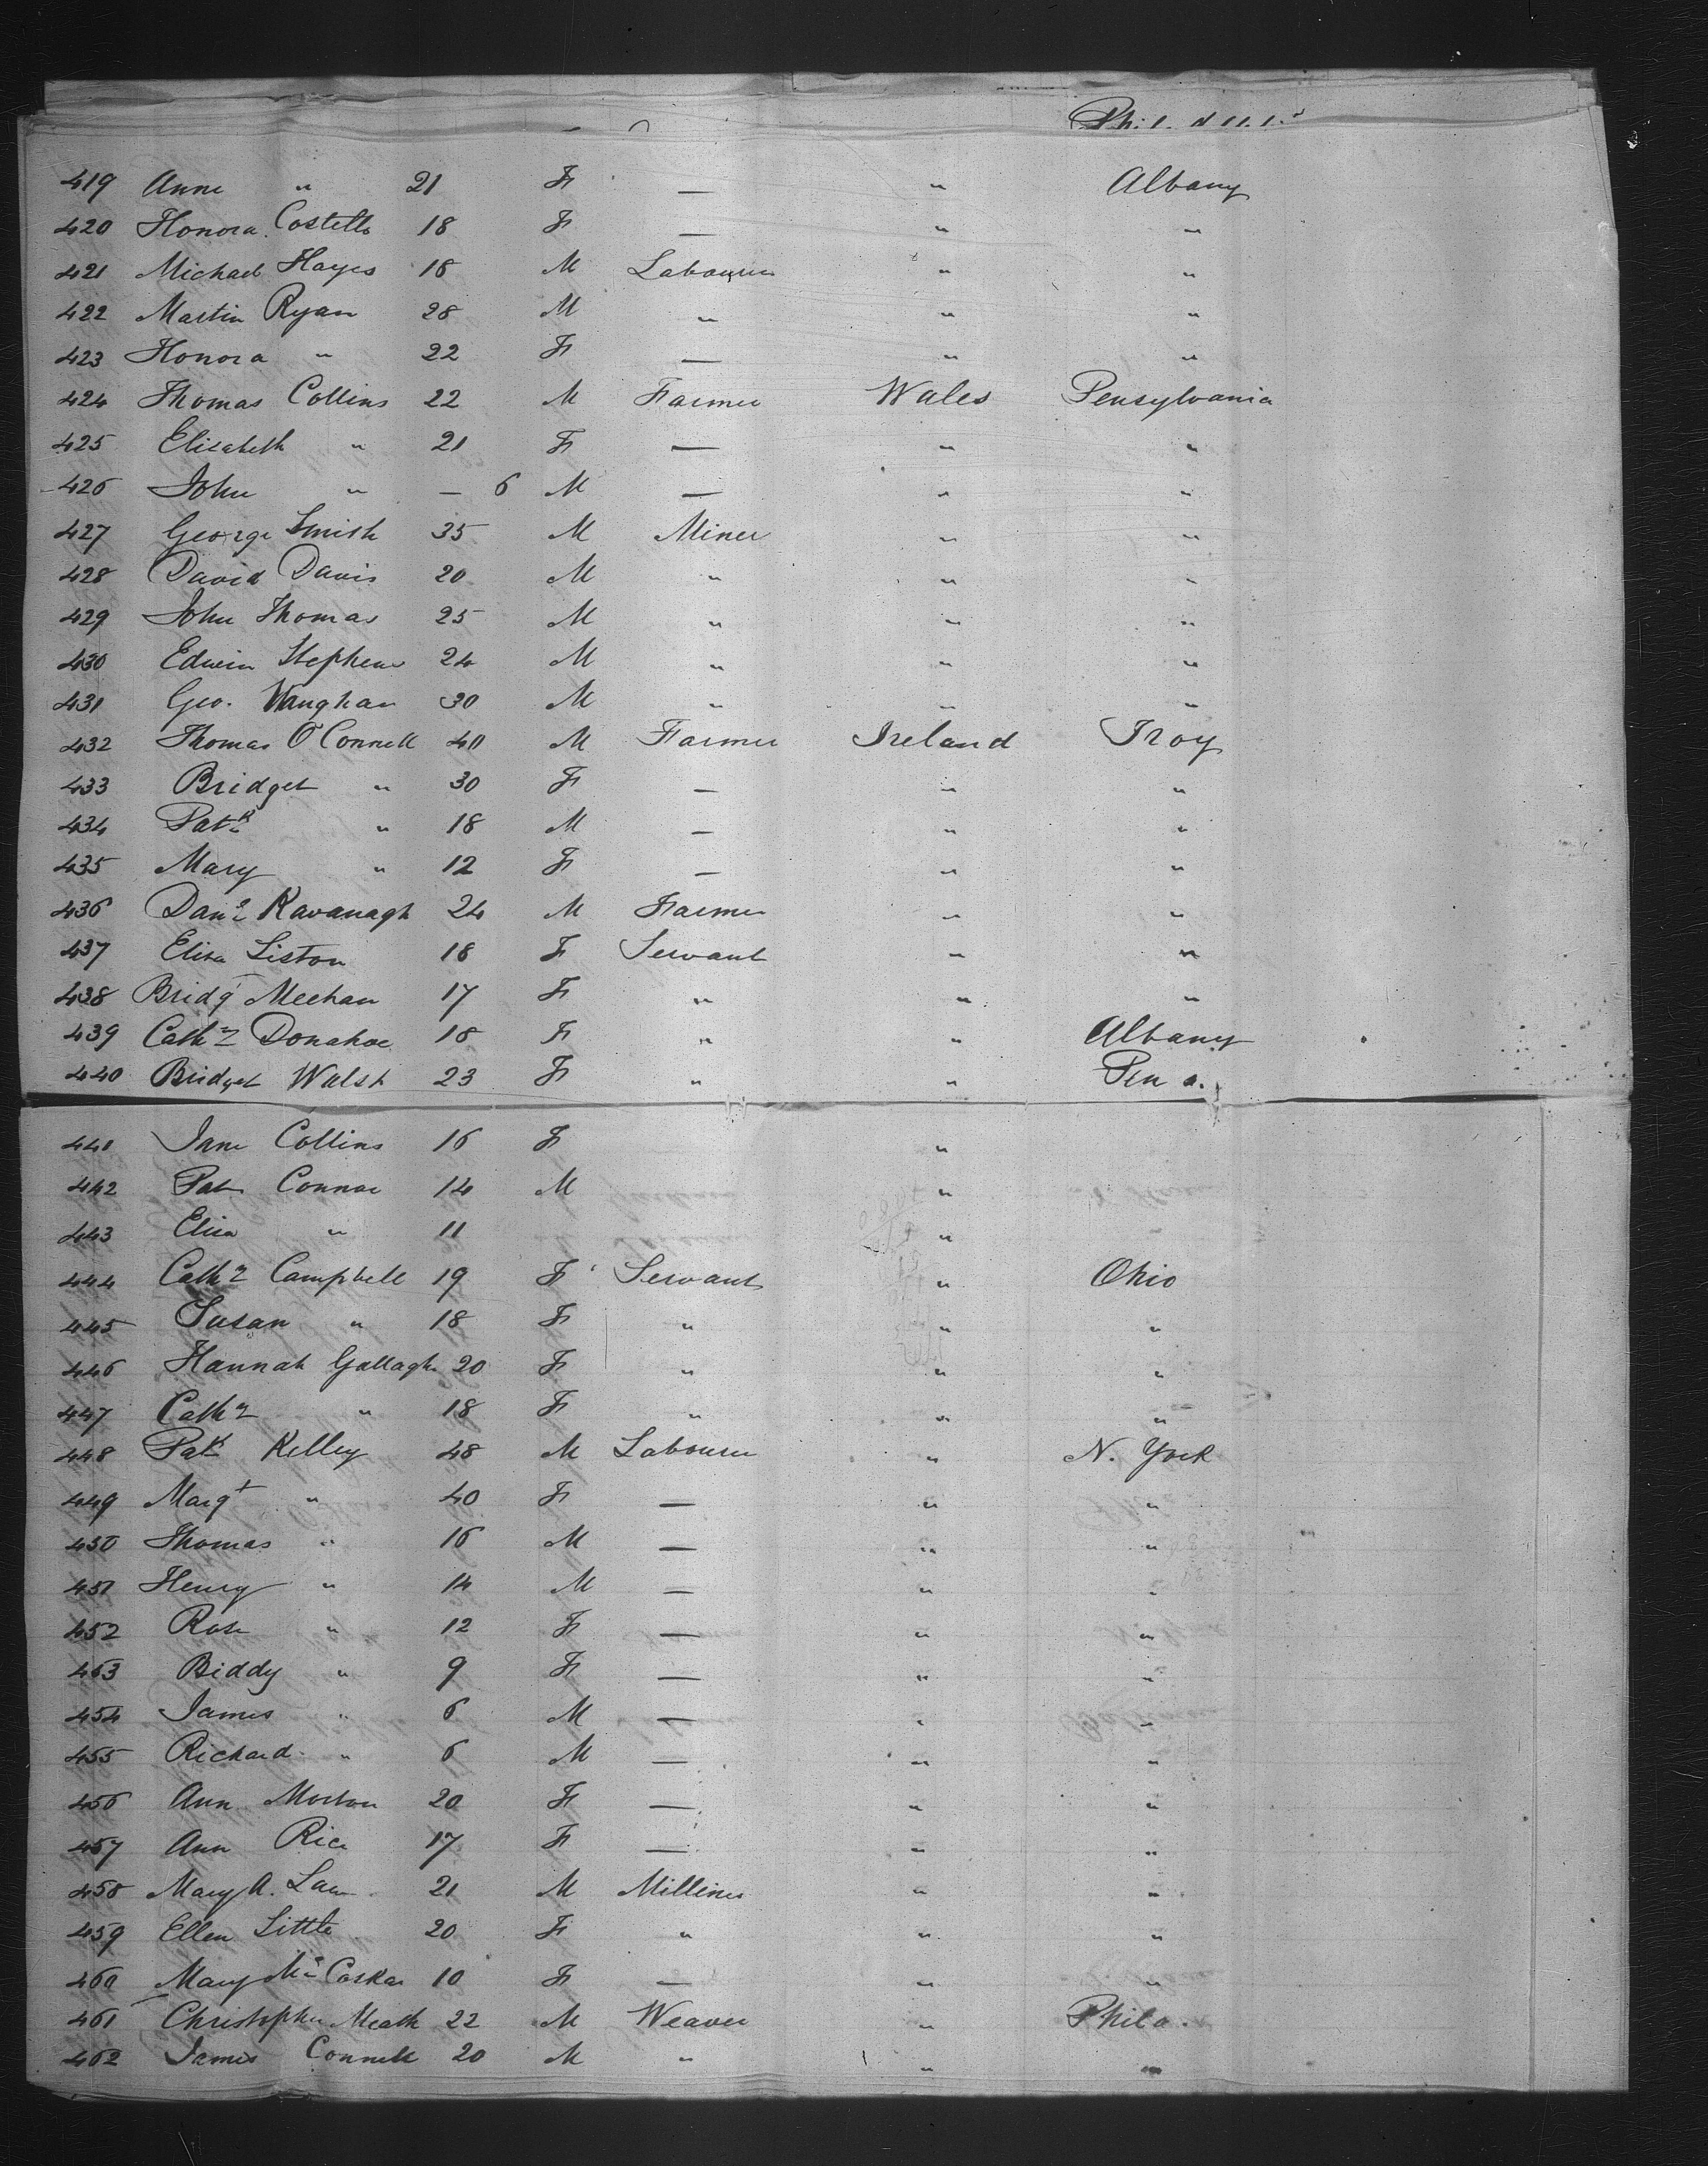 419 Anne " 21 F — " Albany
420 Honora Costello 18 F — " "
421 Michael Hayes 18 M Labourer " "
422 Martin Ryan 28 M " " "
423 Honora " 22 F — " "
424 Thomas Collins 22 M Farmer Wales Pensylvania
425 Elizabeth " 21 F — " "
426 John " — 6 M — " "
427 George Smith 35 M Miner " "
428 David Davis 20 M " " "
429 John Thomas 25 M " " "
430 Edwin Stephens 24 M " " "
431 Geo. Vaughan 30 M " " "
432 Thomas O'Connell 40 M Farmer Ireland Troy
433 Bridget " 30 F — " "
434 Patk " 18 M — " "
435 Mary " 12 F — " "
436 Danl Kavanagh 24 M Farmer " "
437 Eliza Liston 18 F Servant " "
438 Bridgt Meehan 17 F " " "
439 Cathn Donahoe 18 F " " Albany
440 Bridget Walsh 23 F " " Pen a.
441 Jane Collins 16 F "
442 Pat Connor 14 M "
443 Eliza " 11 "
444 Cathn Campbell 19 F Servant " Ohio
445 Susan " 18 F " " "
446 Hannah Gallaghr 20 F " " "
447 Cathn " 18 F " " "
448 Patk Kelley 48 M Labourer " N. York
449 Margt " 40 F — " "
450 Thomas " 16 M — " "
451 Henry " 14 M — " "
452 Rose " 12 F — " "
453 Biddy " 9 F — " "
454 James " 6 M — " "
455 Richard " 6 M — " "
456 Ann Morton 20 F — " "
457 Ann Rice 17 F — " "
458 Mary A. Law 21 M Milliner " "
459 Ellen Little 20 F " " "
460 Mary Mc Coskar 10 F — " "
461 Christopher Meath 22 M Weaver " Phila.
462 James Connell 20 M " " "